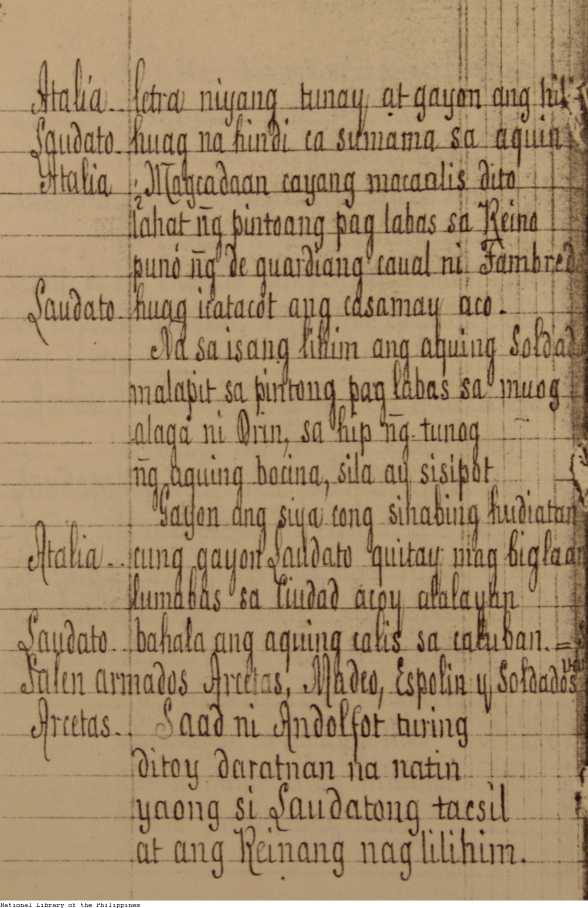 Atalia.. letra niyang tunay, at gayon ang
Laudato. huag na hindi ca sumama sa aquin
Atalia ¿Magcadaan cayang macaalis dito
lahat ñg pintoang pag labas sa Reino
punó ñg de guardiang caual ni Fambred
Laudato. huag icatacot ang casamay aco.
Na sa isang lihim ang aquing Soldad
malapit sa pintong pag labas sa muog
alaga ni Orin, sa hip ñg tunog
ñg aquing bocina, sila ay sisipot
Gayon ang siya cong sinabing hudiatan
Atalia.. cung gayon Laudato quitay mag biglaan
lumabas sa Ciudad acoy alalayan
Laudato.. bahala ang aquing calis sa caluban.=
Salen armados Arcetas, Madeo, Espolin y Soldados
Arcetas.. Saad ni Andolfot turing
ditoy daratnan na natin
yaong si Laudatong tacsil
at ang Reinang nag lilihim.
National Library of the Philippines